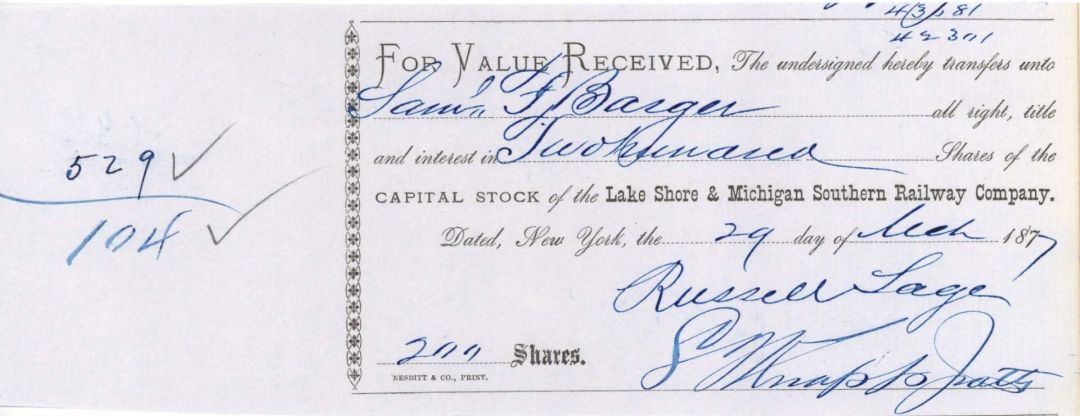 43081
42301
FOR VALUE RECEIVED, The undersigned hereby transfers unto
Sam'l F. Barger all right, title
529
and interest in Two hundred Shares of the
CAPITAL STOCK of the Lake Shore & Michigan Southern Railway Company.
104
Dated, New York, the 29 day of Mch 1877
Russell Sage
200 Shares.
NESBITT & CO., PRINT.